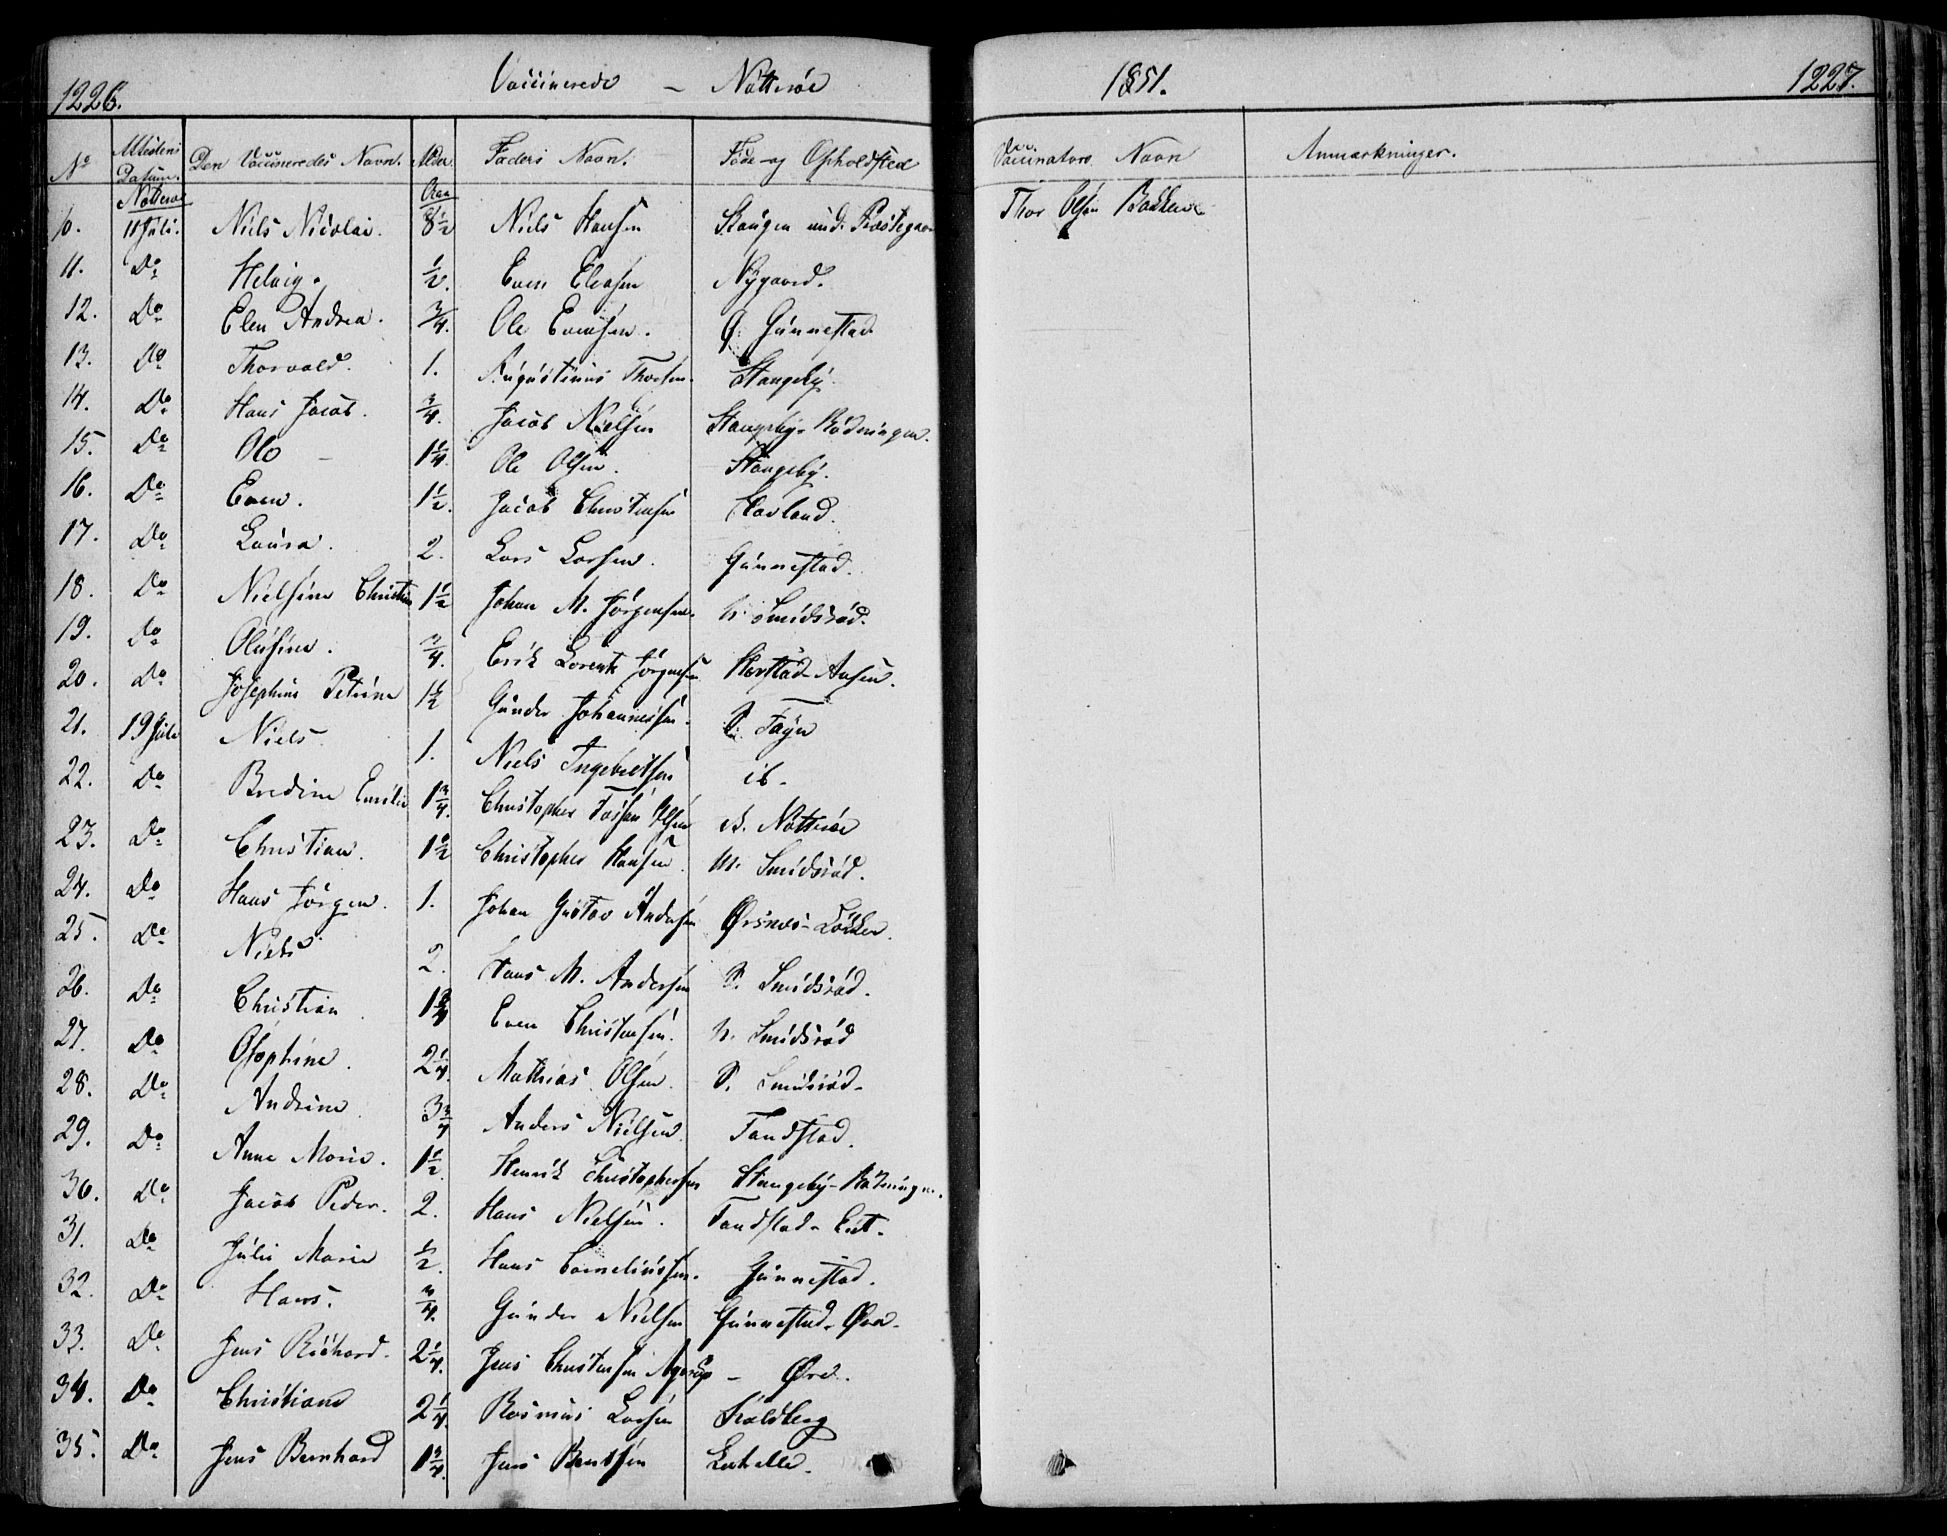 1226. Vaccinerede – Nötteröe 1851. 1227.
No Attestens Datum. Den Vaccineredes Navn. Alder. Faders Navn. Føde- og Opholdsted Vaccinators Navn Anmærkninger.
Nötteröe
11 Juli. Niels Nicolai. 8½ Niels Hansen Skaugen und. Thor Olsen
11. Do Helvig. ½. Even Nygaard.
12. Do Elen Andrea. ¾. Ole Evensen. G. Gúnnestad
13. Do Thorvald. 1. Augústinús Thorsen. Stangeby.
14. Do Hans Jacob. ¾. Jacob Nielsen Stangeby-Rödningen.
15. Do Ole – 1¼. Ole Olsen. Stangeby.
16. Do Even. 1½. Jacob Christensen Havland.
17. Do Laura. 2. Lars Larsen. Gúnnestad.
18. Do Nielsine 1½ Johan M. Jörgensen. N. Smidsröd.
19. Do Olúsine. ¾. Erik Lorentz Jörgensen
20. Do Josephine Petrine 1½ Gúnder Johannessen. S. Föyn
21. 19 Juli Niels. 1. Niels Ingebretsen ib.
22. Do Bredine Emilie 1¾. Christopher Olsen B. Nötteröe
23. Do Christian. 1½ Christopher Hansen M. Smidsröd.
24. Do Hans Jörgen. 1. Johan Gústav Andersen Ørsnes-Lökken.
25. Do Niels 2. Hans M. Andersen S. Smidsröd.
26. Do Christian. 1¾ Even Christensen. N. Smidsröd
27. Do 2¼. Mathias Olsen. S. Smidsröd.
28. Do Andrine. 3¾ Anders Nielsen. Tandstad.
29. Do Anne Marie. 1½. Henrik Christophersen Stangeby-Rödningen.
30. Do Jacob Peder. 2. Hans Nielsen. Tandstad-Eiet.
31. Do Júlie Marie ½. Hans Corneliússen. Gúnnestad.
32. Do Hans. ¾. Gúnder Nielsen Gúnnestad-Øra.
33. Do Jens Richard. 2¼. Jens Christensen – Øre.
34. Do Christiane 2¼. Rasmus Larsen
35. Do Jens Bernhard 1¾. Jens Berntsen